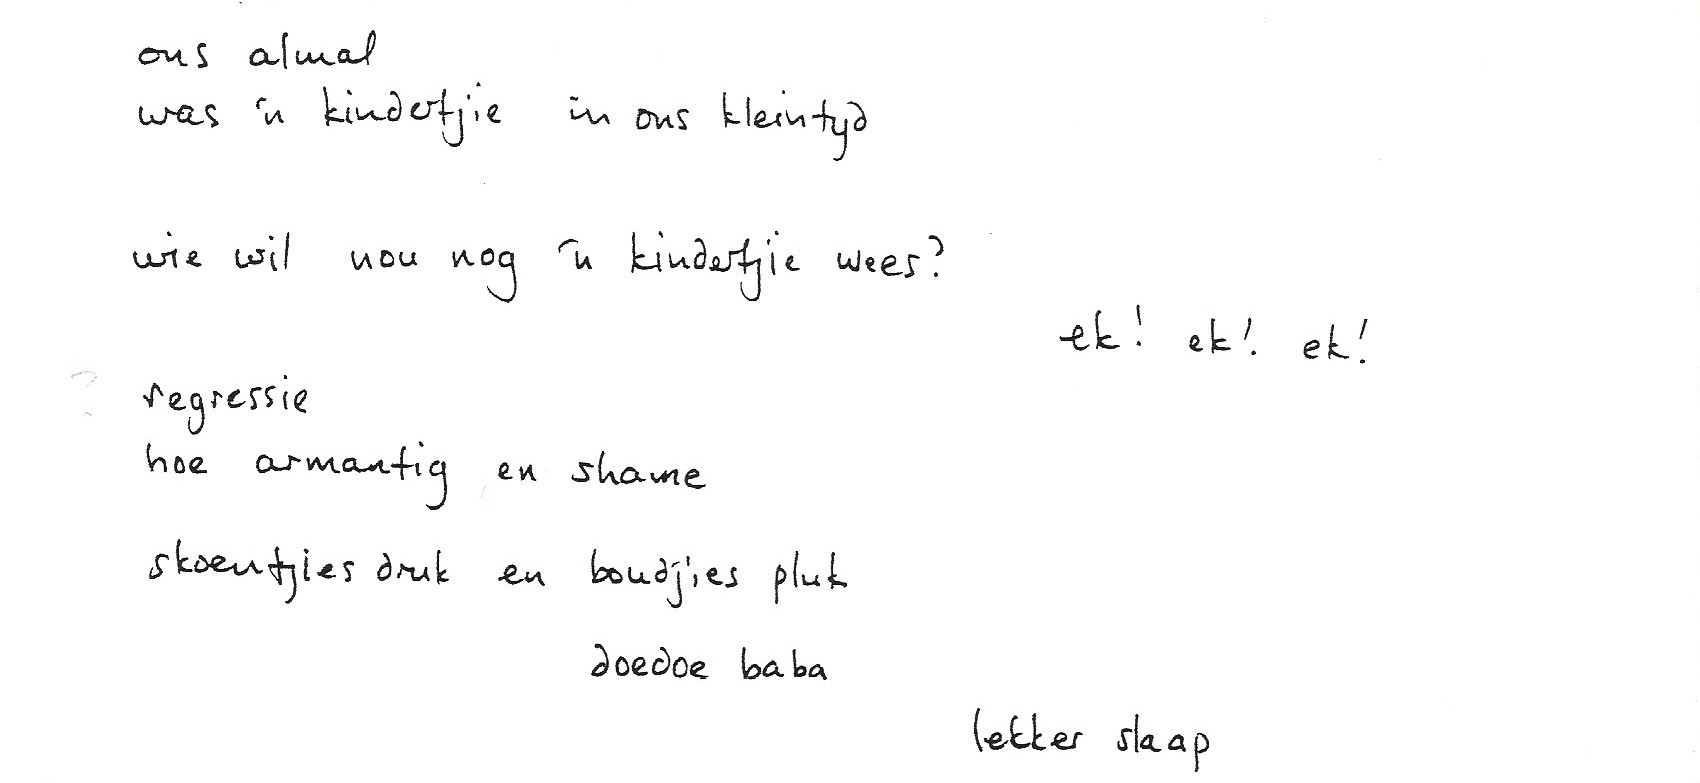 ons almal
was 'n kindertjie in ons kleintyd
wie wil nou nog 'n kindertjie wees?
ek! ek! ek!
?
regressie
hoe armantig en shame
skoentjies druk en boudjies pluk
doedoe baba
lekker slaap